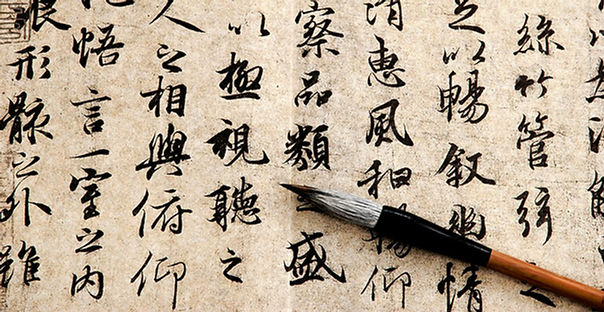 以為流觴
絲竹管弦之
足以暢叙幽情
清惠風和暢仰
察品類之盛
以極視聽之
人之相與俯仰
悟言一室之內
浪形骸之外雖